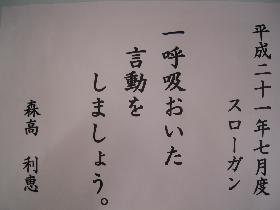 平成二十一年七月度
スローガン
一呼吸おいた
言動を
しましょう。
森高 利恵